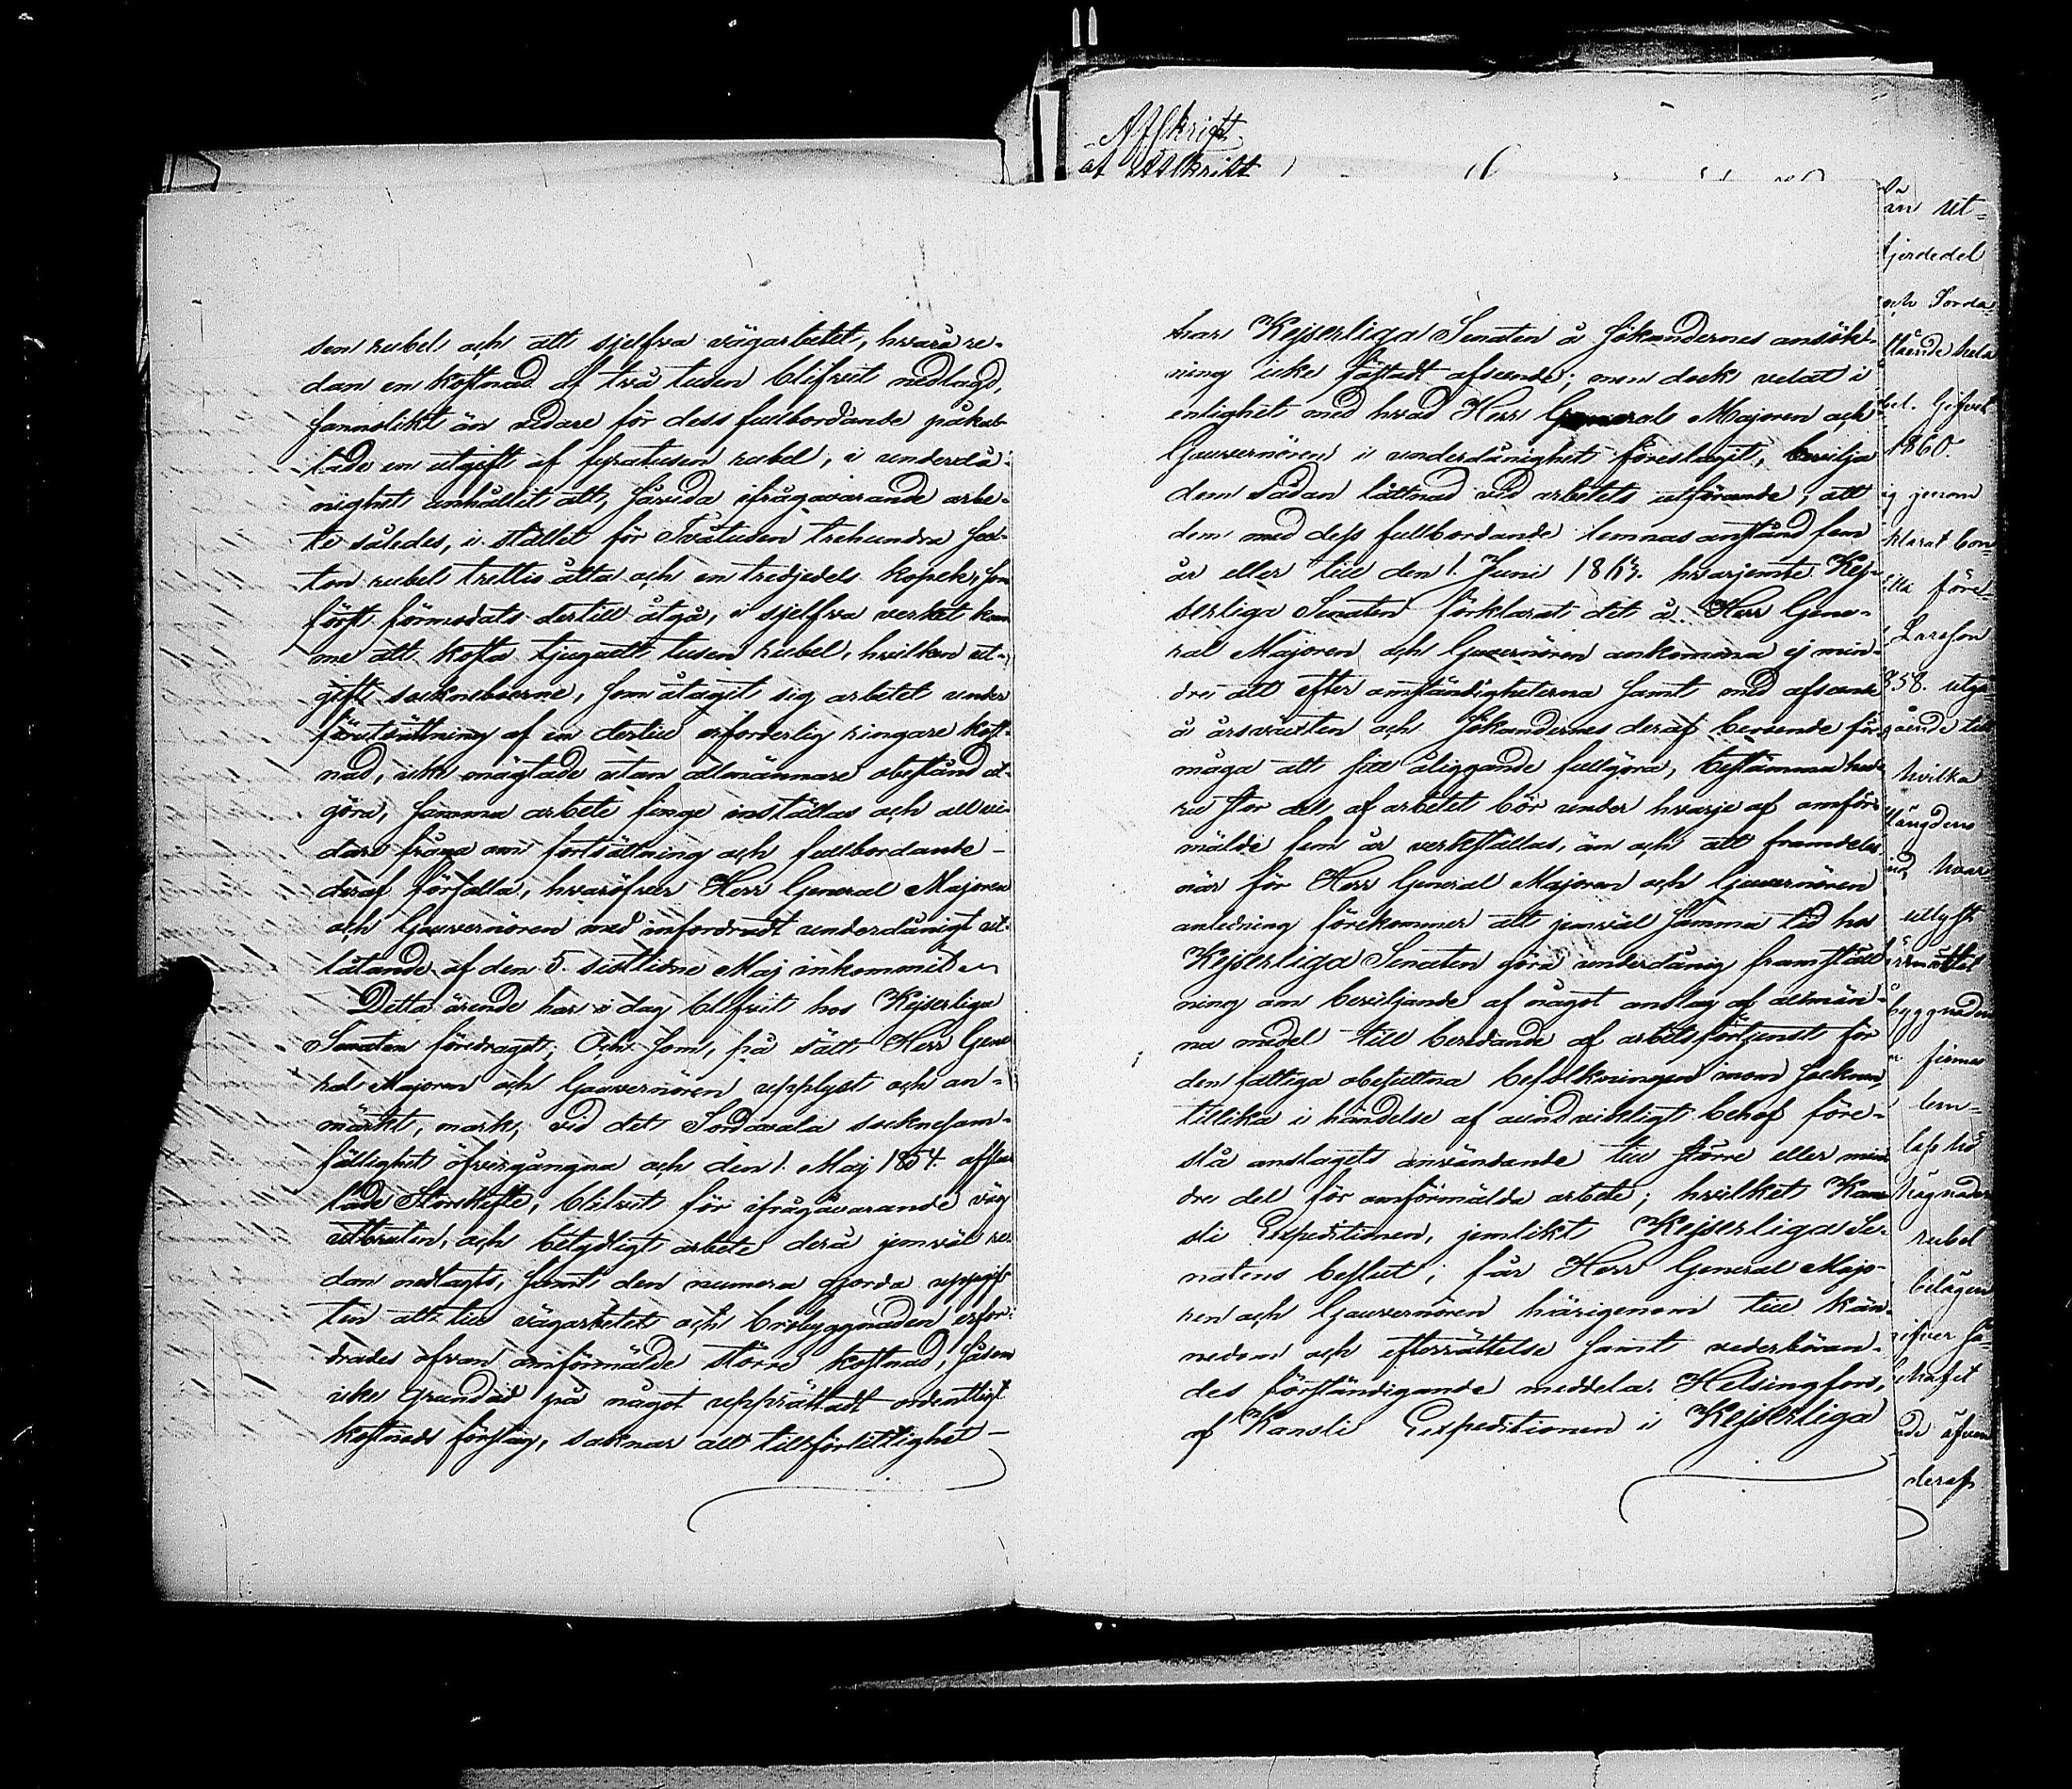 Afskrift
af Afskrift
sen rubel och att sjelfva vägarbetet, hvarå re-
dan en kostnad af två tusen blifvit nedlagd,
sannolikt än vidare för dess fullbordande påkal-
lade en utgift af fyratusen rubel, i underdå-
nighet anhållit att, såvida ifrågavarande arbe-
te således, i stället för Tvåtusen trehundra sex-
ton rubel trettio åtta och en tredjedels kopek, som
först förmodats dertill åtgå, i sjelfva verket kom-
me att kosta tjuguett tusen rubel, hvilken ut-
gift sockneboerne, som åtagit sig arbetet under
förutsättning af en dertill erforderlig ringare kost-
nad, icke mägtade utan allmännare obestånd ut-
göra, samma arbete finge inställas och all vi-
dare fråga om fortsättning och fullbordande
deraf förfalla, hvaröfver Herr General Majoren
och Gouvernören med infordradt underdånigt ut-
låtande af den 5. sistlidne Maj inkommit.
Detta ärende har i dag blifvit hos Kejserliga
Senaten föredraget; Och som, på sätt Herr Gene-
ral Majoren och Gouvernören upplyst och an-
märkt, mark, vid det Sordavala socknesam-
fällighet öfvergångna och den 1. Maj 1854. afslu-
tade Storskifte, blifvit för ifrågavarande väg
utbruten, och betydligt arbete derå jemväl re-
dan nedlagts, samt den numera gjorda uppgif-
ten att till vägarbetet och brobyggnaden erfor-
drades ofvan omförmälde större kostnad, såsom
icke grundad på något upprättadt ordentligt
kostnads förslag, saknar all tillförlitlighet
har Kejserliga Senaten å Sökandernes ansök-
ning icke fästadt afseende; men dock velat i
enlighet med hvad Herr General Majoren och
Gouvernören i underdånighet föreslagit, bevilja
dem sådan lättnad vid arbetets utförande, att
dem med dess fullbordande lemnas anstånd fem
år eller till den 1. Juni 1863. hvarjemte Kej-
serliga Senaten förklarat det å Herr Gene-
ral Majoren och Gouvernören ankomma ej min-
dre att efter omständigheterna samt med afseende
å årsväxten och Sökandernes deraf beroende för-
måga att sitt åliggande fullgöra, bestämma huru
stor del af arbetet bör under hvarje af omför-
mälde fem år verkställas, än och att framdeles
när för Herr General Majoren och Gouvernören
anledning förekommer att jemväl samma tid hos
Kejserliga Senaten göra underdånig framställ-
ning om beviljande af något anslag af allmän-
na medel till beredande af arbetsförtjenst för
den fattiga obesuttna befolkningen inom socknen,
tillika i händelse af oundvikligt behof före-
slå anslagets användande till större eller min-
dre del för omförmälde arbete; hvilket Kan-
sli Expeditionen, jemlikt Kejserliga Se-
natens beslut, får Herr General Majo-
ren och Gouvernören härigenom till kän-
nedom och efterrättelse samt vederböran-
des förständigande meddela. Helsingfors,
af Kansli Expeditionen i Kejserliga
än ut-
fjerdedel
och Sorda-
stående hela
1860.
ig genom
klarat
före-
Larsson
858. utgå-
hvilka
hvar-
utlyst
byggnaden
finnas
lem-
rubel
belägen
öfver
äfven
deraf